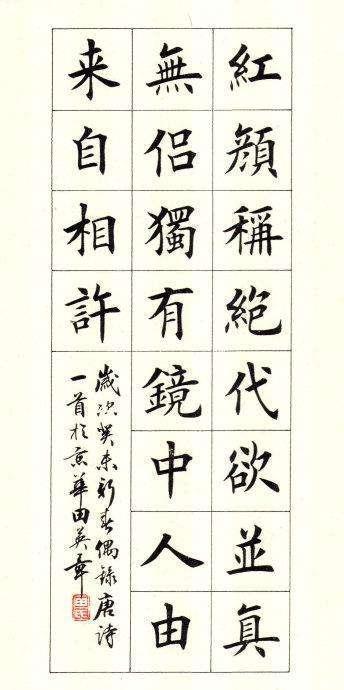 紅顏稱絕代欲並真
無侶獨有鏡中人由
来自相許
歲次癸未新春偶錄唐詩
一首於京華田英章